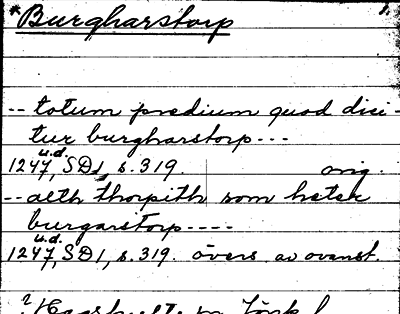 *Burgharstorp
1.
-- totum predium quod dici-
tur burgharstorp ---
u.d.
1247, SD1, s. 319. orig.
-- alth thorpith som heter
burgarstorp ----
u.d.
1247, SD1, s. 319. övers. av ovanst.